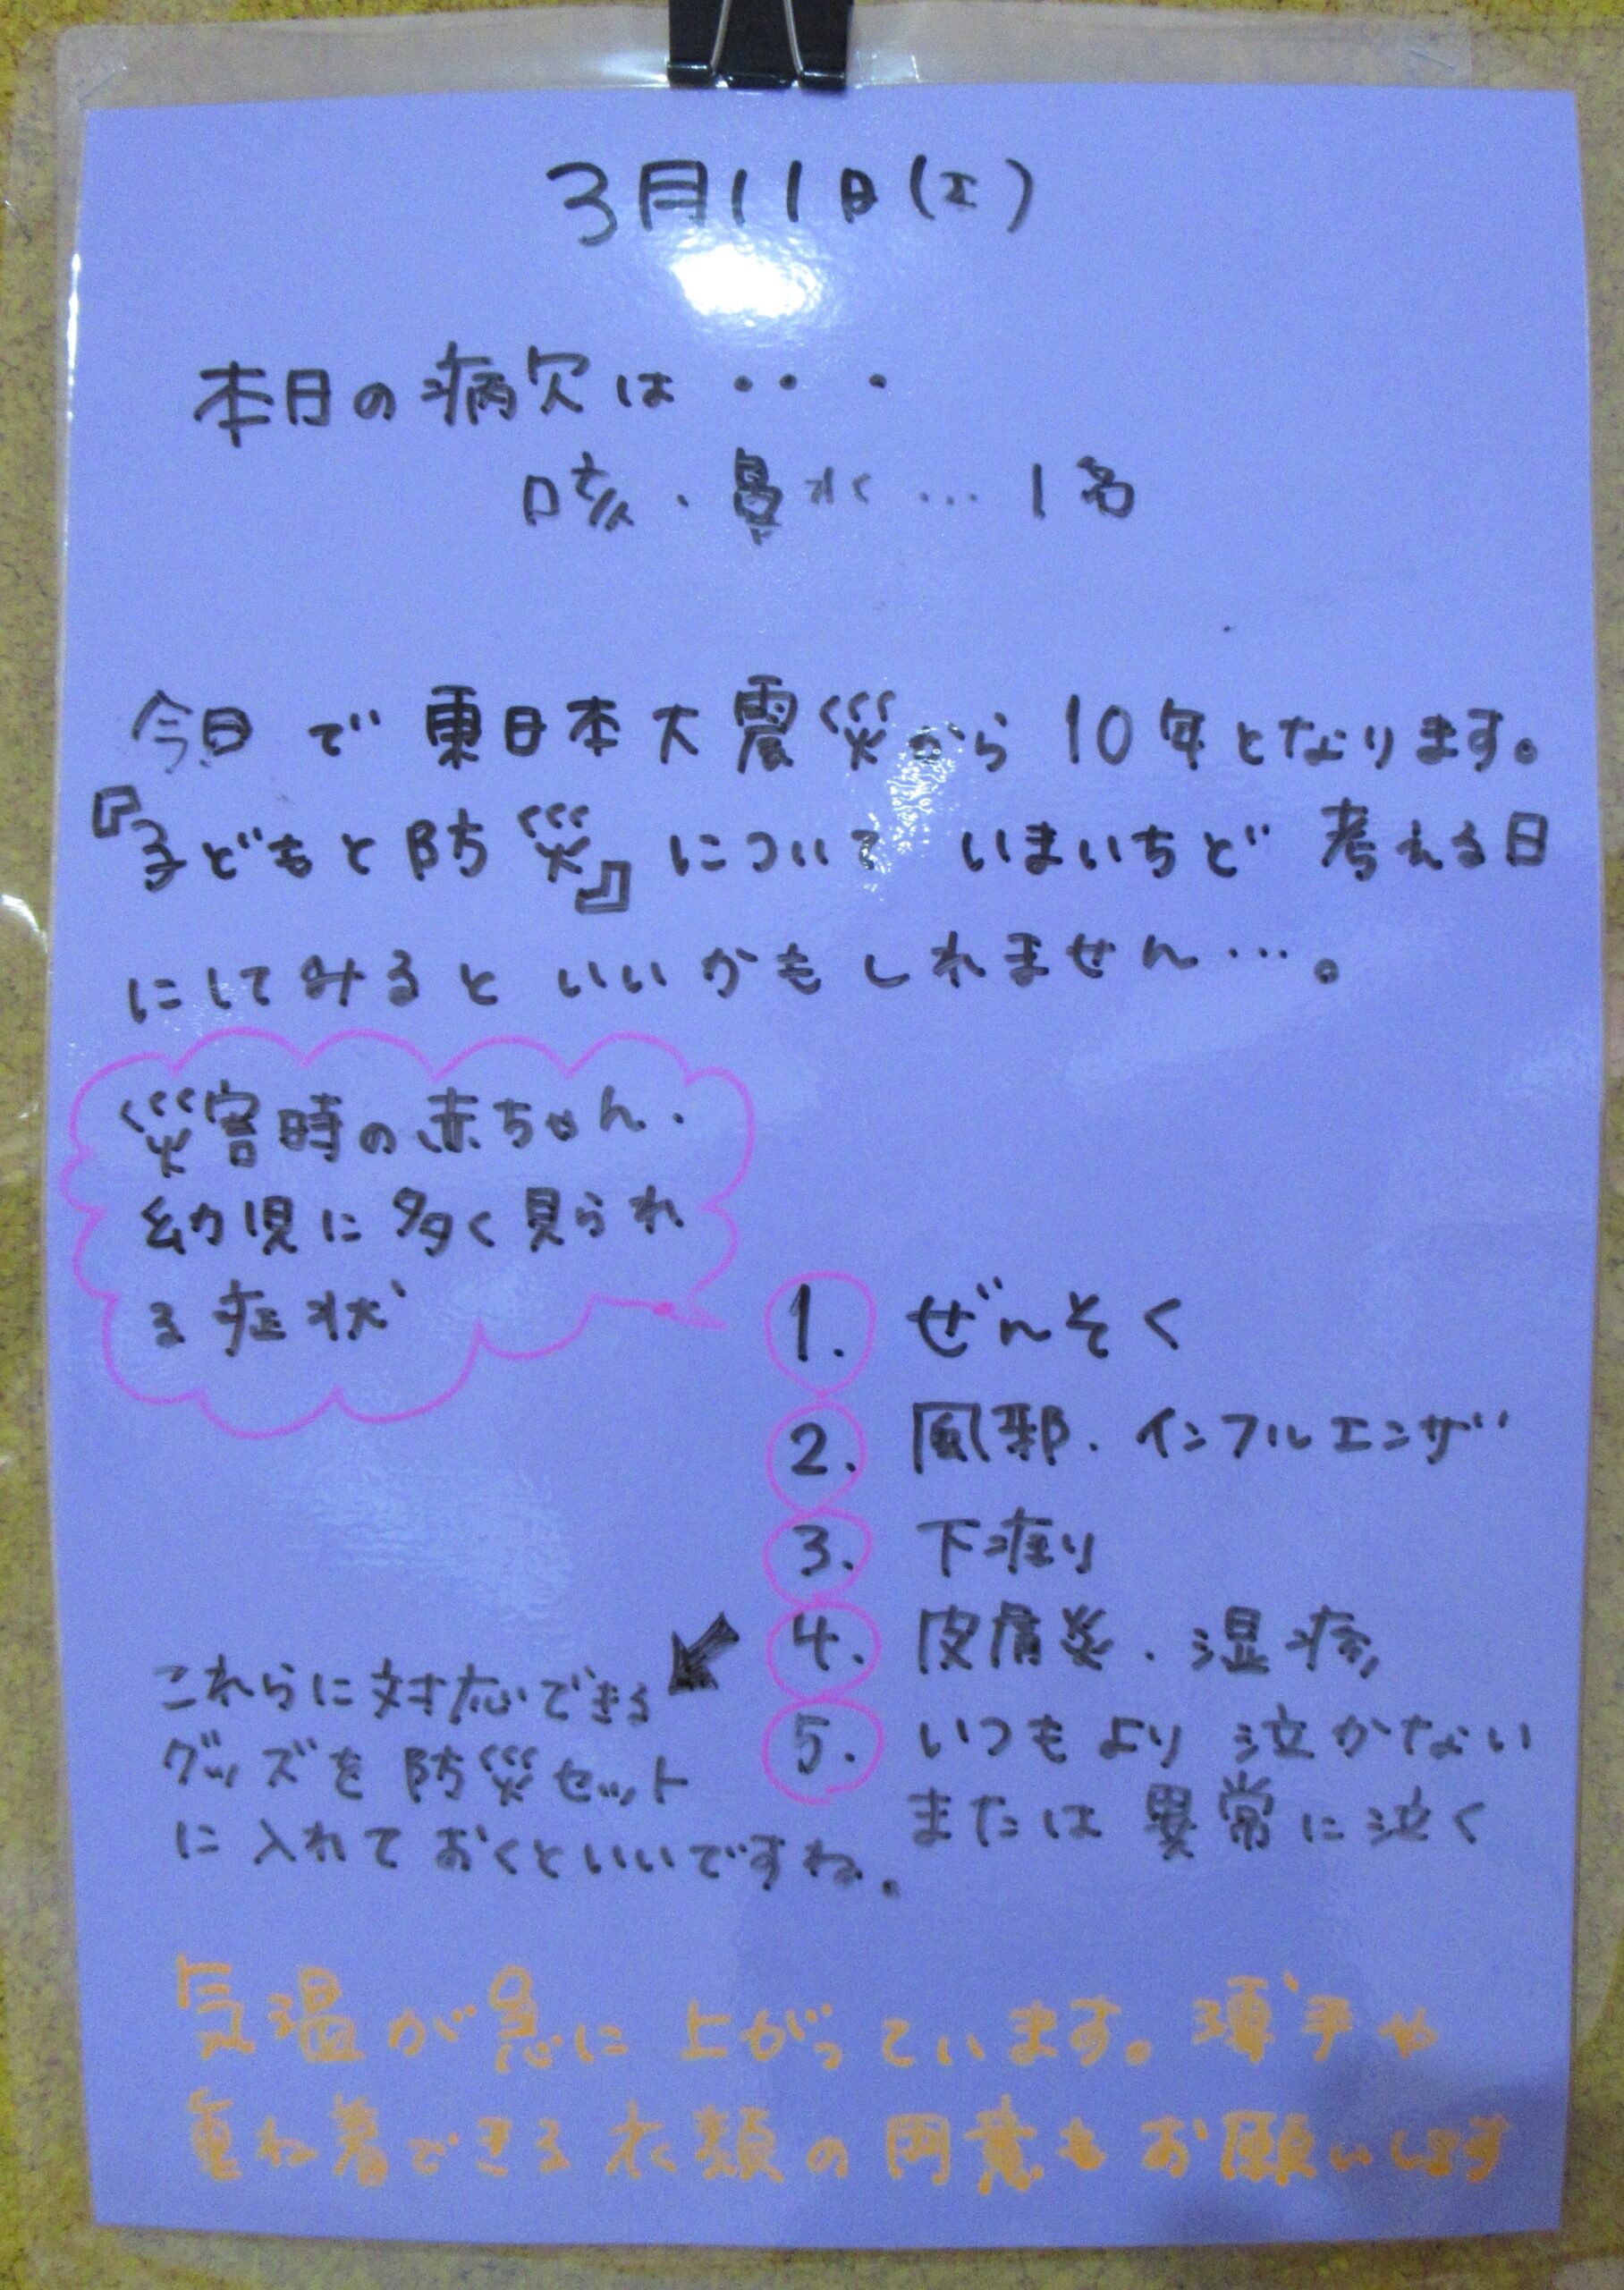 3月11日(土)
本日の病欠は・・・
咳・鼻水…1名
今日で東日本大震災から10年となります。
『子どもと防災』についていまいちど考える日
にしてみるといいかもしれません…。
災害時の赤ちゃん・
幼児に多く見られ
る症状
1. ぜんそく
2. 風邪・インフルエンザ
3. 下痢
4. 皮膚炎・湿疹
5. いつもより泣かない
または異常に泣く
これらに対応できる
グッズを防災セット
に入れておくといいですね。
気温が急に上がっています。薄手や
重ね着できる衣類の用意もお願いします